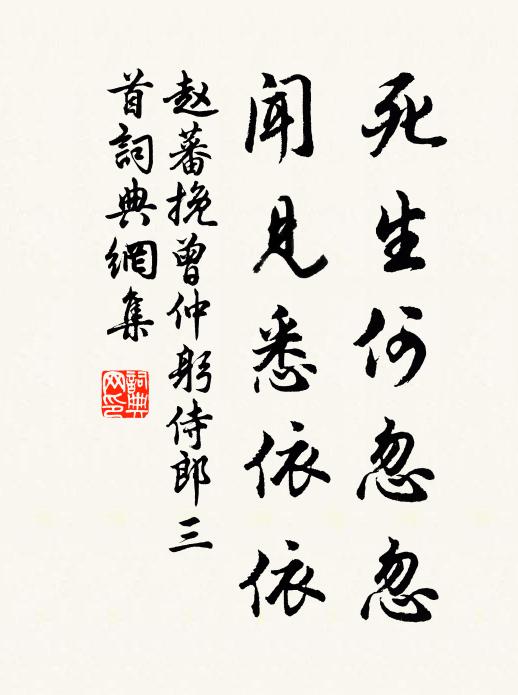 死生何忽忽
闻见悉依依
赵蕃挽曾仲躬侍郎三
首詞典網集
詞典
网印